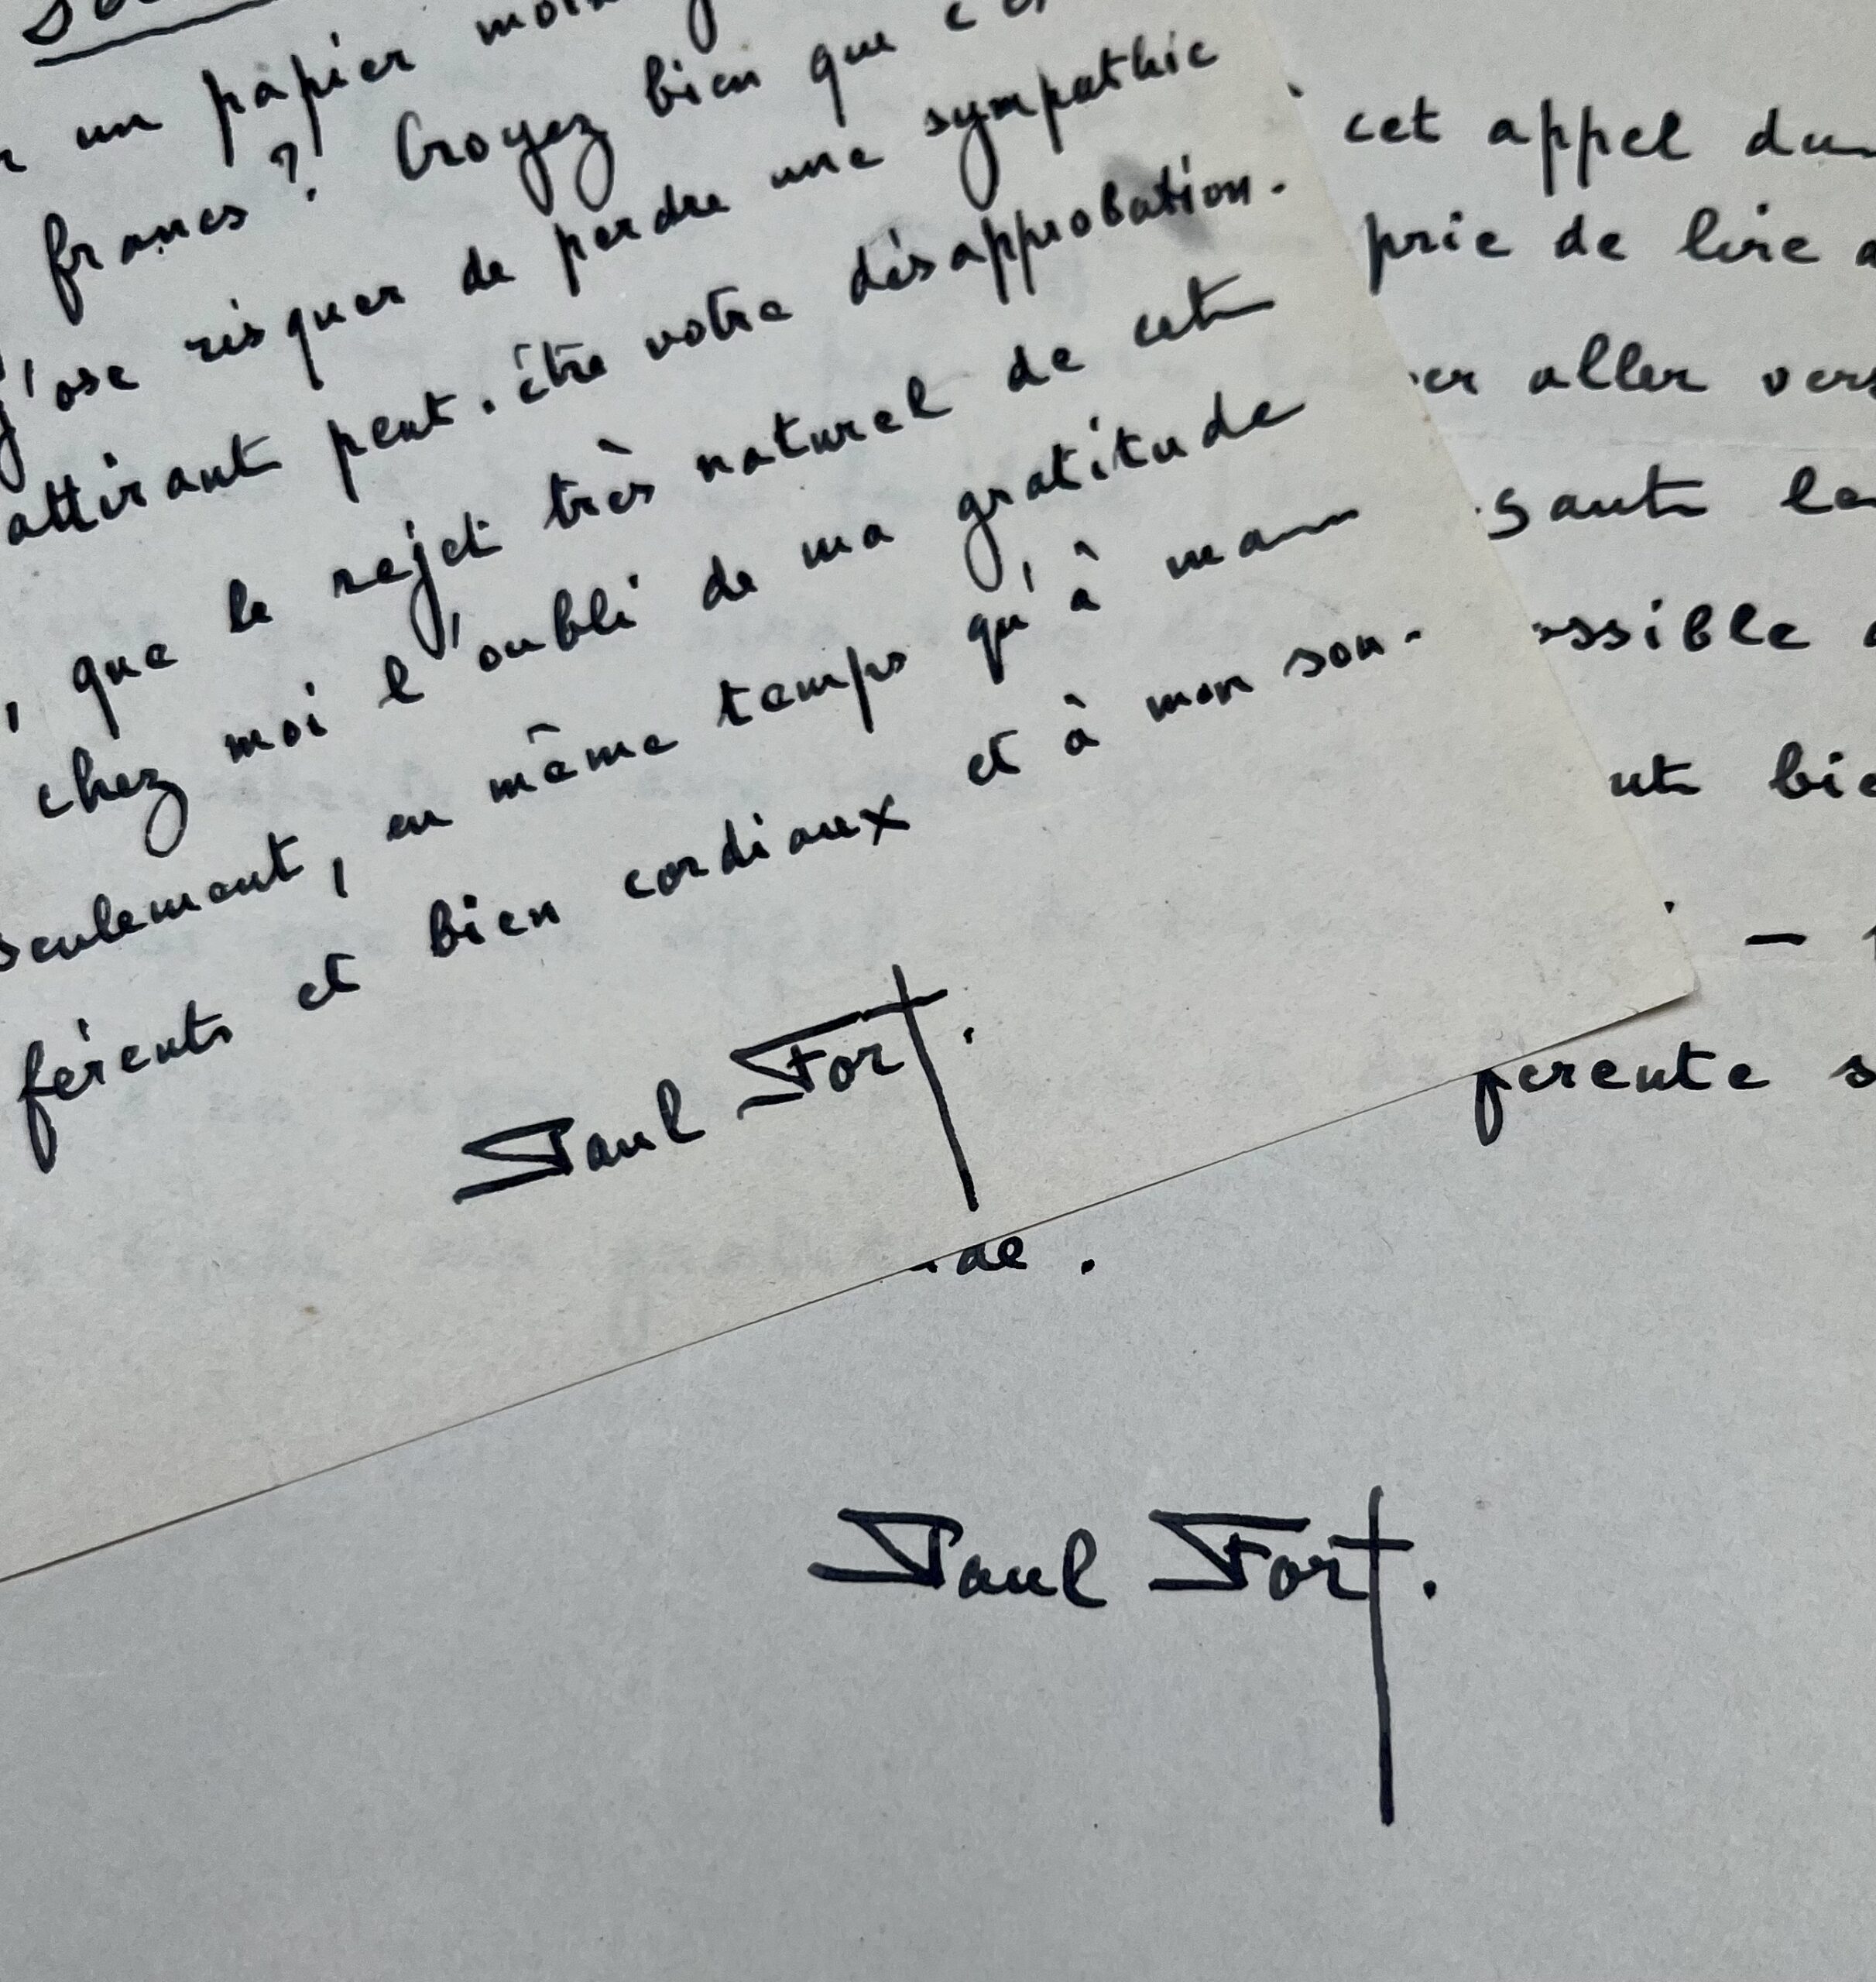 un papier
francs ? Croyez bien que
j'ose risquer de perdre une sympathie
attirant peut-être votre désapprobation.
, que le rejet très naturel de cet
chez moi l'oubli de ma gratitude
seulement, en même temps qu'à ma
férents et bien cordiaux et à mon sou-
Paul Fort.
cet appel
prie de lire
er aller vers
sant
ssible
nt
—
de.
Paul Fort.